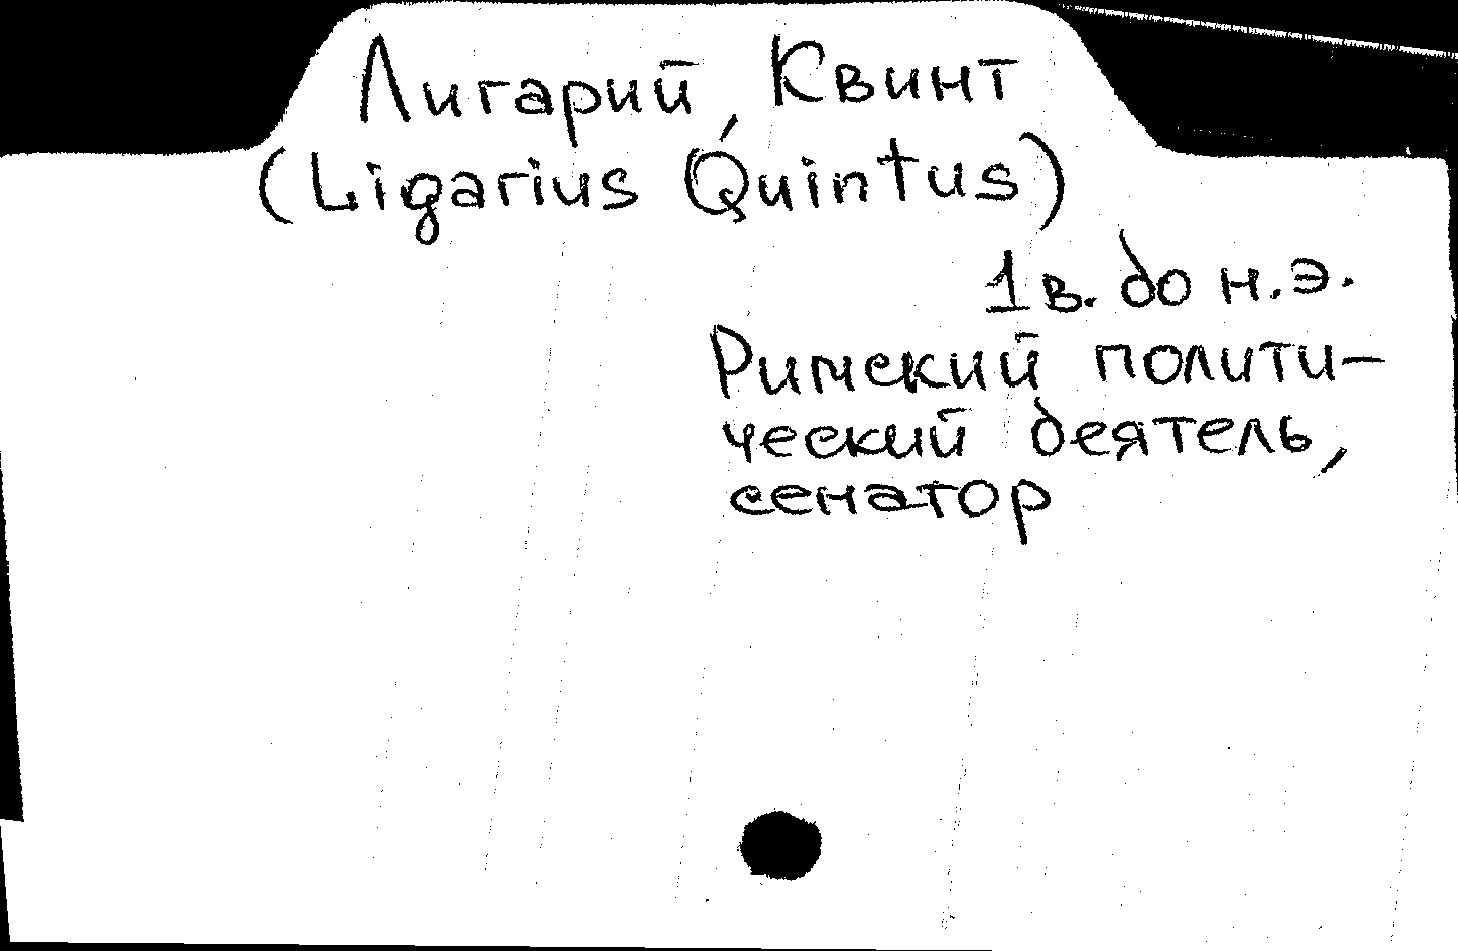 Лигарий, Квинт
(Ligarius Quintus)
1 в. до н.э.
Римский полити-
ческий деятель,
сенатор